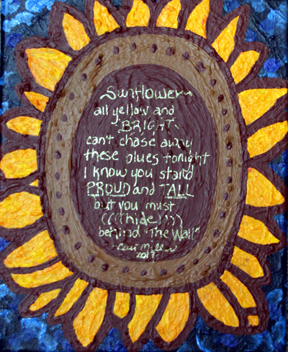 Sunflower
all yellow and
BRIGHT
can't chase away
these blues tonight
I know you stand
PROUD and TALL
but you must
(((hide))))
behind "The Wall"
2017